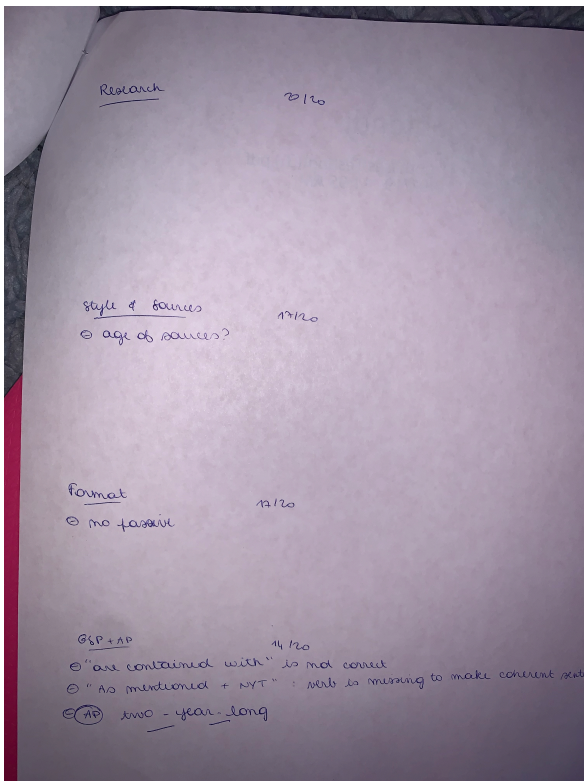 Research 20/20
Style & Sources 17/20
⊖ age of sources?
Format 17/20
⊖ no passive
GSP + AP 14/20
⊖ "are contained with" is not correct
⊖ "As mentioned + NYT" : verb is missing to make coherent sent
⊖ AP two-year-long